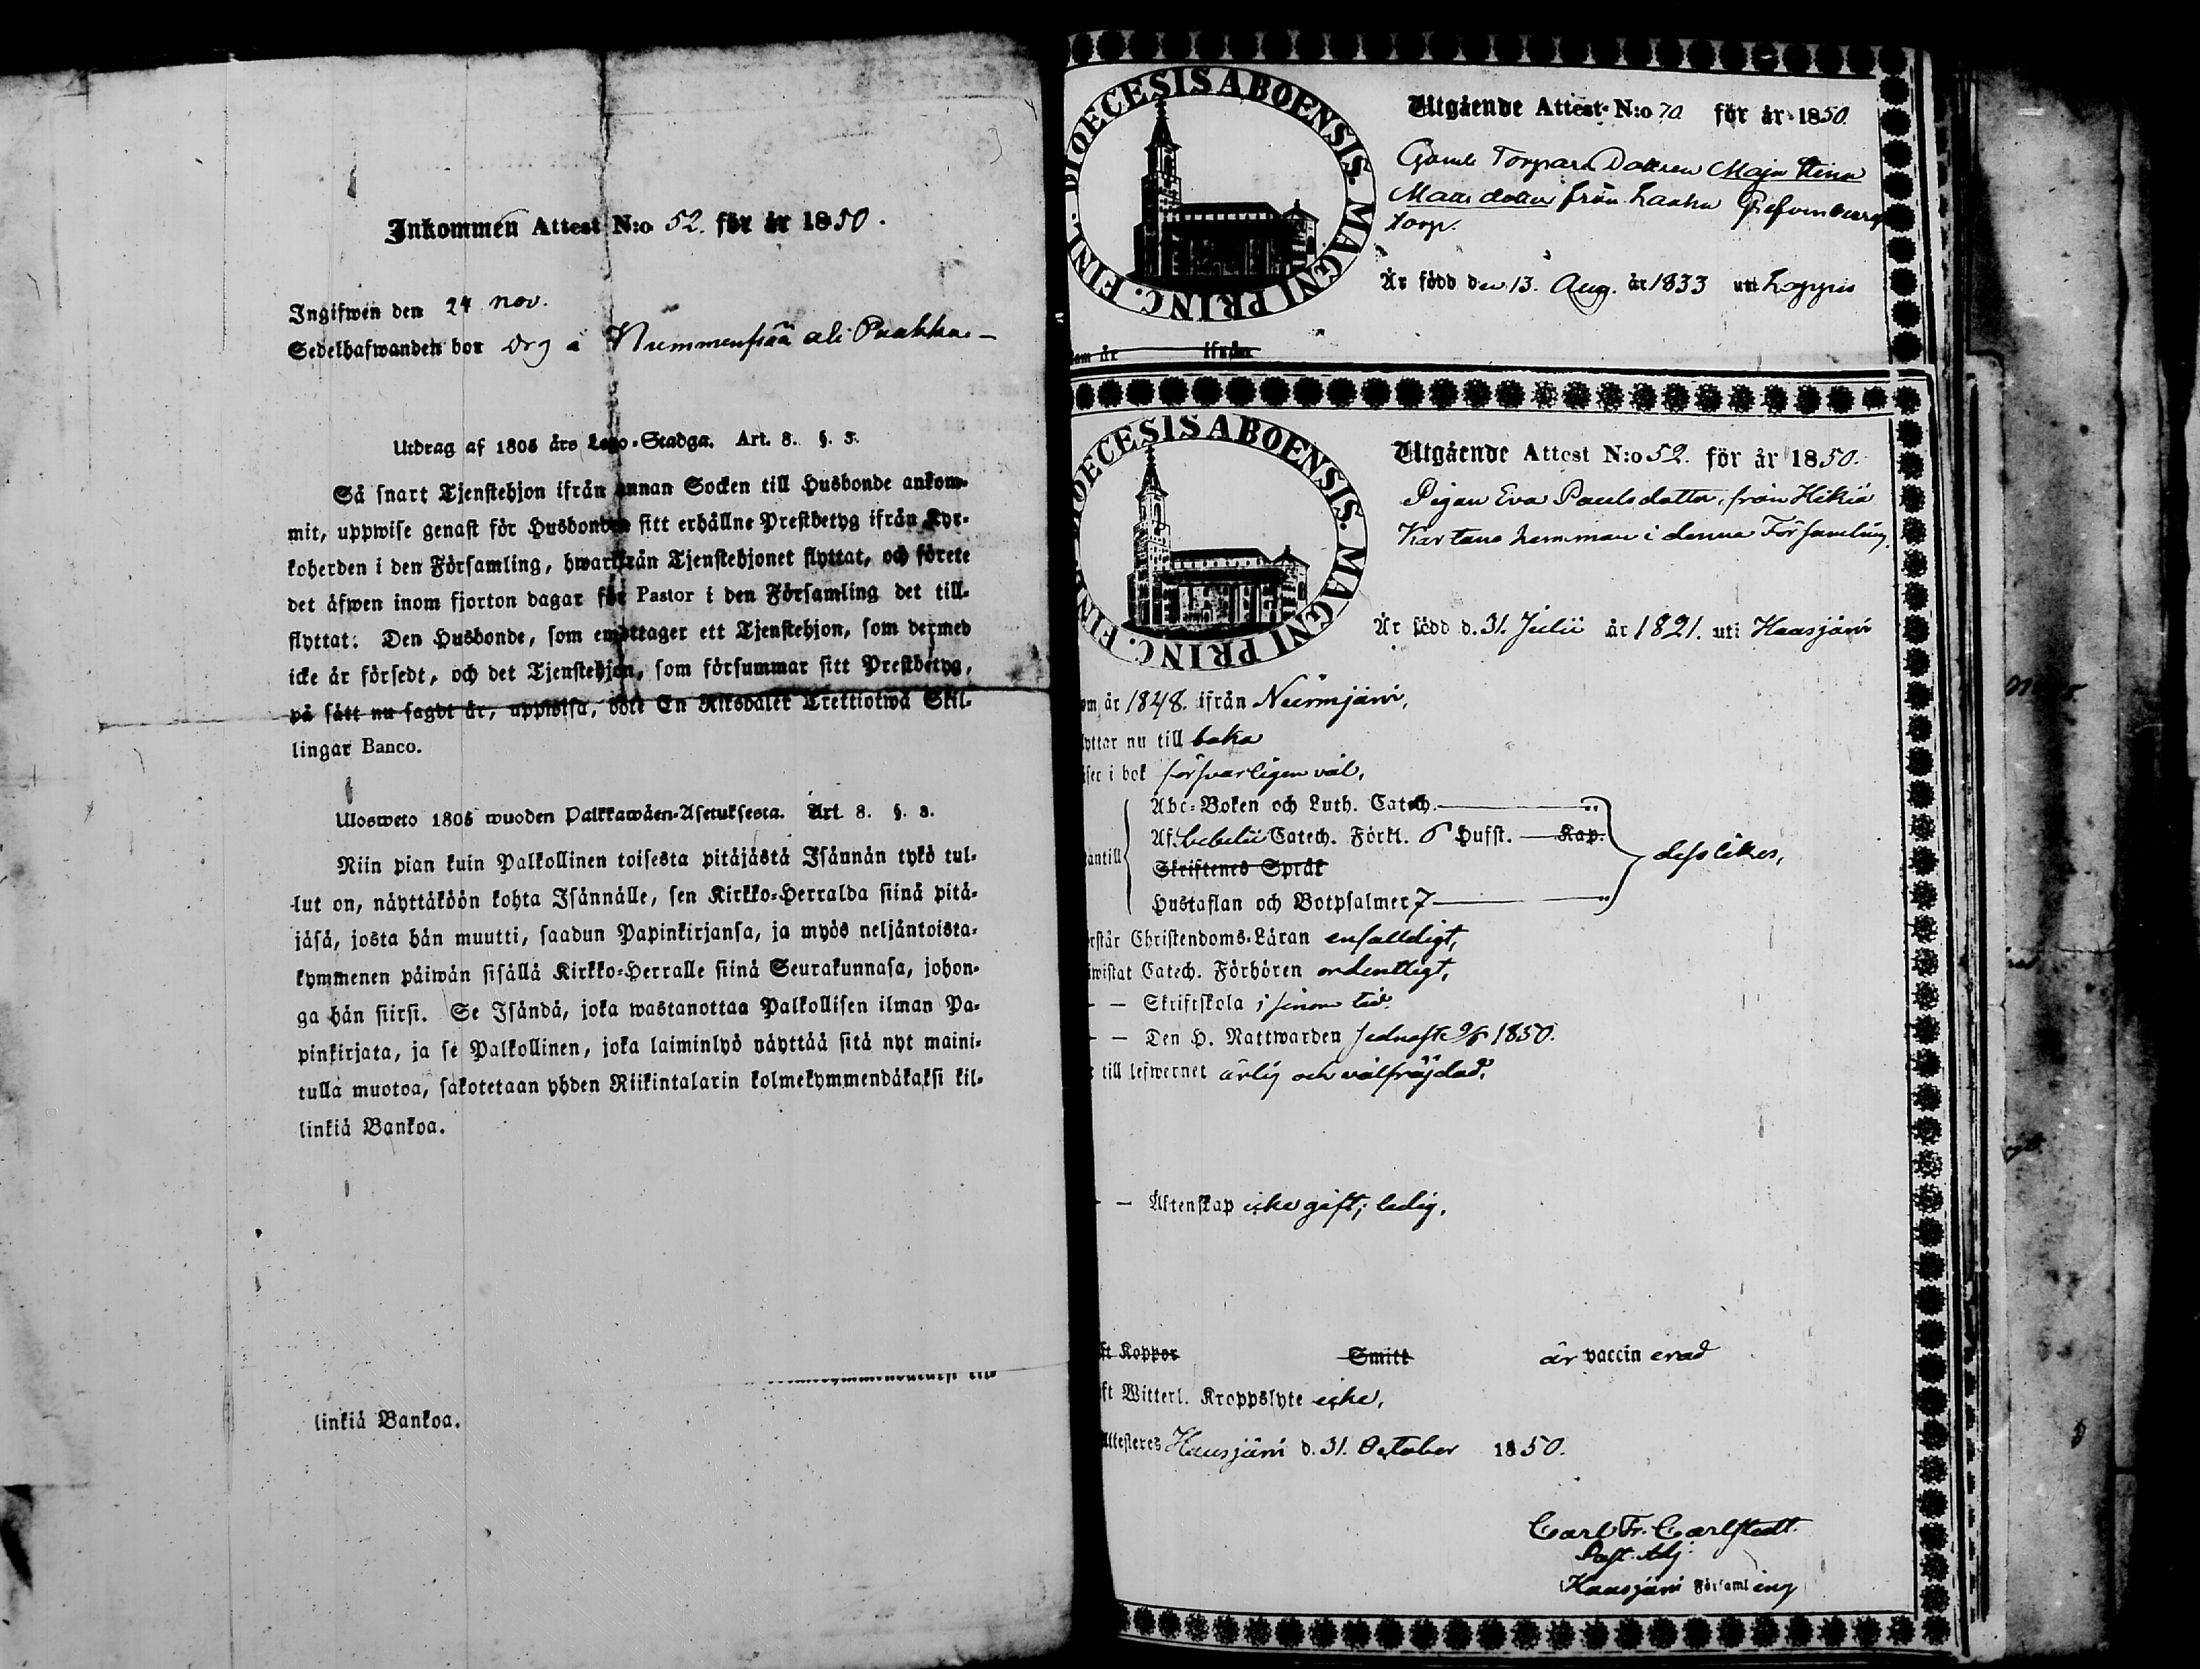 Inkommen Attest N:o 52. för år 1850.
Ingifwen den 24 nov.
Sedelhafwanden bor Drg å Nummenpää ali Paakka –
Utdrag af 1805 års Lego-Stadga. Art. 8. §. 3.
Så snart Tjenstehjon ifrån annan Socken till Husbonde ankom-
mit, uppwise genast för Husbonden sitt erhållne Prestbetyg ifrån Kyr-
koherden i den Församling, hwarifrån Tjenstehjonet flyttat, och förete
det äfwen inom fjorton dagar för Pastor i den Församling det till-
flyttat. Den Husbonde, som emottager ett Tjenstehjon, som dermed
icke är försedt, och det Tjenstehjon, som försummar sitt Prestbetyg,
på sätt nu sagdt är, uppwisa, böte En Riksdaler Trettiotwå Skil-
lingar Banco.
Ulosweto 1805 wuoden Palkkawäen-Asetuksesta. Art. 8. §. 3.
Niin pian kuin Palkollinen toisesta pitäjästä Isännän tykö tul-
lut on, näyttäköön kohta Isännälle, sen Kirkko-Herralda siinä pitä-
jäsä, josta hän muutti, saadun Papinkirjansa, ja myös neljäntoista-
kymmenen päiwän sisällä Kirkko-Herralle siinä Seurakunnasa, johon-
ga hän siirsi. Se Isändä, joka wastanottaa Palkollisen ilman Pa-
pinkirjata, ja se Palkollinen, joka laiminlyö näyttää sitä nyt maini-
tulla muotoa, sakotetaan yhden Riikintalarin kolmekymmendäkaksi kil-
linkiä Bankoa.
linkiä Bankoa.
DIOECESIS ABOENSIS. MAGNI PRINC. FINL.
Utgående Attest N:o 70 för år 1850.
Gamle Torpare Dottren Maja Stina
Matts dotter från
torp.
Är född den 13. Aug. år 1833 uti Loppis
om år ifrån
DIOECESIS ABOENSIS. MAGNI PRINC. FINL
Utgående Attest N:o 52. för år 1850.
Pigan Eva Paulsdotter, från Hikiä
Kartano hemman i denna Församling,
Är född d. 31. Julii år 1821. uti Hausjärvi
om år 1848. ifrån Nurmijärvi,
yttar nu till baka
ser i bok försvarligen väl,
Abc-Boken och Luth. Catech.
Af. Catech. Förkl. 6 Hufst. Kap.
antill
Skriftenes Språk
dess likes,
Hustaflan och Botpsalmer 7
rstår Christendoms-Läran enfalldigt,
iwistat Catech. Förhören ordentligt,
– – Skriftskola i sinom tid.
– – Den H. Nattwarden sednast 1850.
till lefwernet ärlig och välfräjdad.
– – Äktenskap icke gift; ledig.
ft Koppor Smitt är vaccinerad
ft Witterl. Kroppslyte icke,
Attesteres Hausjärvi d. 31. October 1850.
Carl Fr. Carlstedt.
Past. Adj.
Hausjärvi Församling